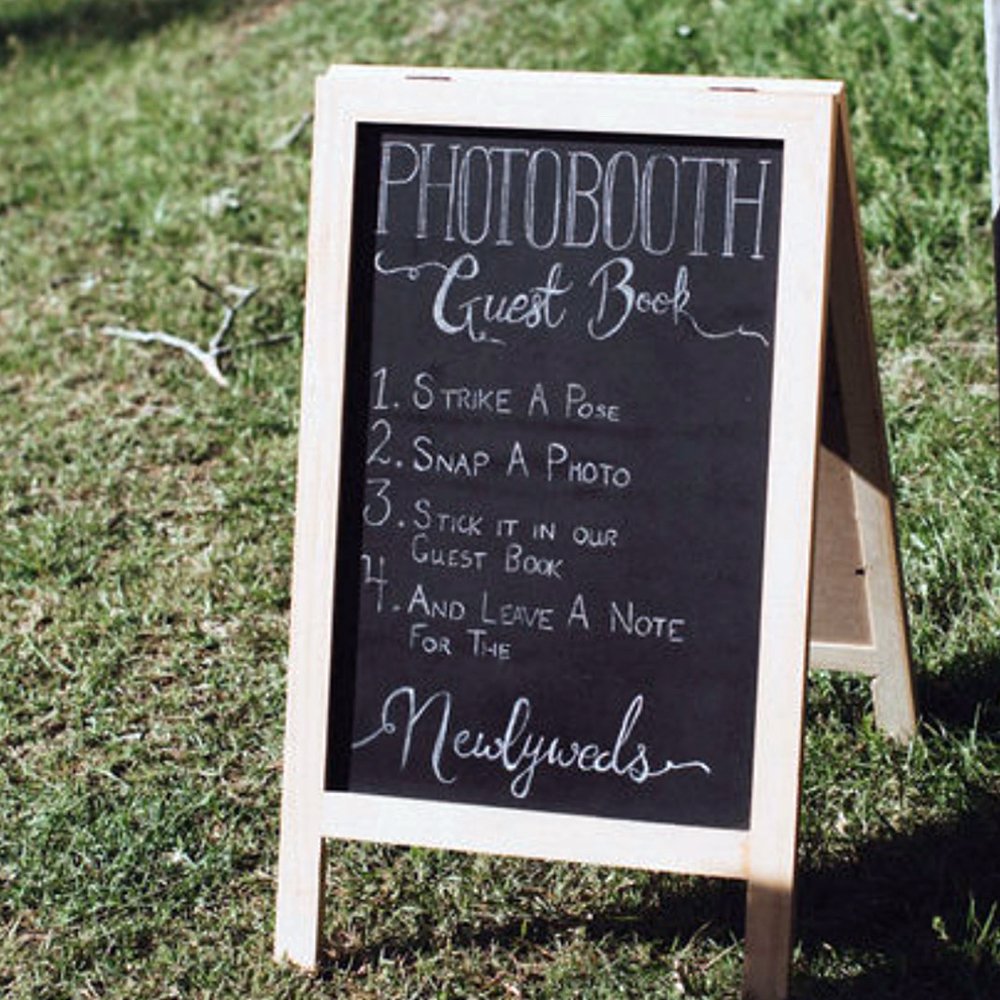 PHOTOBOOTH
Guest Book
1. STRIKE A POSE
2. SNAP A PHOTO
3. STICK IT IN OUR
GUEST BOOK
4. AND LEAVE A NOTE
FOR THE
Newlyweds